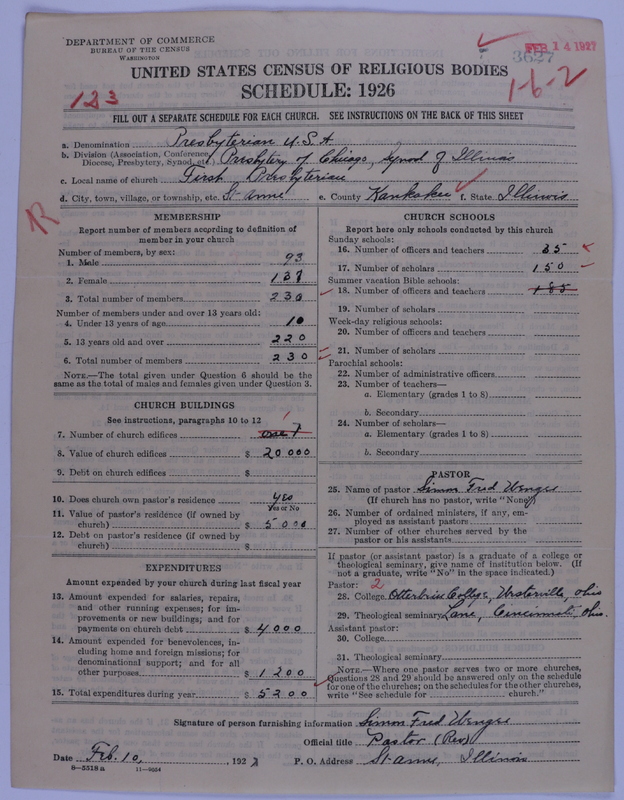 DEPARTMENT OF COMMERCE
BUREAU OF THE CENSUS
WASHINGTON
FEB 14 1927
3627
1-6-2
UNITED STATES CENSUS OF RELIGIOUS BODIES
SCHEDULE: 1926
123
FILL OUT A SEPARATE SCHEDULE FOR EACH CHURCH. SEE INSTRUCTIONS ON THE BACK OF THIS SHEET
a. Denomination Presbyterian U.S.A.
b. Division (Association, Conference, Diocese, Presbytery, Synod, etc.) Presbytery of Chicago, Synod of Illinois
c. Local name of church First Presbyterian
d. City, town, village, or township, etc. St Anne e. County Kankakee f. State Illinois
R
MEMBERSHIP
Report number of members according to definition of
member in your church
Number of members, by sex:
1. Male 93
2. Female 137
3. Total number of members 230
Number of members under and over 13 years old:
4. Under 13 years of age 10
5. 13 years old and over 220
6. Total number of members 230
NOTE.—The total given under Question 6 should be the
same as the total of males and females given under Question 3.
CHURCH BUILDINGS
See instructions, paragraphs 10 to 12
7. Number of church edifices one 1
8. Value of church edifices $ 20000
9. Debt on church edifices $
10. Does church own pastor's residence yes
Yes or No
11. Value of pastor's residence (if owned by
church) $ 5000
12. Debt on pastor's residence (if owned by
church) $
EXPENDITURES
Amount expended by your church during last fiscal year
13. Amount expended for salaries, repairs,
and other running expenses; for im-
provements or new buildings; and for
payments on church debt $ 4000
14. Amount expended for benevolences, in-
cluding home and foreign missions; for
denominational support; and for all
other purposes $ 1200
15. Total expenditures during year $ 5200
CHURCH SCHOOLS
Report here only schools conducted by this church
Sunday schools:
16. Number of officers and teachers 35
17. Number of scholars 150
Summer vacation Bible schools:
18. Number of officers and teachers 185
19. Number of scholars
Week-day religious schools:
20. Number of officers and teachers
21. Number of scholars
Parochial schools:
22. Number of administrative officers
23. Number of teachers—
a. Elementary (grades 1 to 8)
b. Secondary
24. Number of scholars—
a. Elementary (grades 1 to 8)
b. Secondary
PASTOR
25. Name of pastor Simon Fred Wenger
(If church has no pastor, write "None")
26. Number of ordained ministers, if any, em-
ployed as assistant pastors
27. Number of other churches served by the
pastor or his assistants
If pastor (or assistant pastor) is a graduate of a college or
theological seminary, give name of institution below. (If
not a graduate, write "No" in the space indicated.)
Pastor: 2
28. College Otterbein College, Westerville, Ohio
29. Theological seminary Lane, Cincinnati, Ohio.
Assistant pastor:
30. College
31. Theological seminary
NOTE.—Where one pastor serves two or more churches,
Questions 28 and 29 should be answered only on the schedule
for one of the churches; on the schedules for the other churches,
write "See schedule for church."
Signature of person furnishing information Simon Fred Wenger
Official title Pastor (Rev)
Date Feb. 10, 1927 P. O. Address St. Anne, Illinois
8-5518a 11-9054